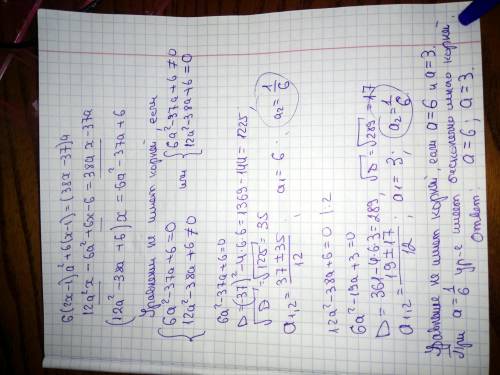 6(2x-1)a²+6(x-1)=(38x-37)a
12a²x-6a²+6x-6=38ax-37a
(12a²-38a+6)x=6a²-37a+6
Уравнение не имеет корней, если
{6a²-37a+6=0 12a²-38a+6≠0 или {6a²-37a+6≠0 12a²-38a+6=0
6a²-37a+6=0
D=(37)²-4·6·6=1369-144=1225,
√D=√1225=35
a₁,₂=37±35/12, a₁=6, a₂=1/6
12a²-38a+6=0 |:2
6a²-19a+3=0
D=361-4·6·3=289, √D=√289=17
a₁,₂=19±17/12, a₁=3, a₂=1/6.
Уравнение не имеет корней, если a=6 и a=3.
При a=1/6 ур-е имеет бесконечно много корней.
Ответ: a=6; a=3.